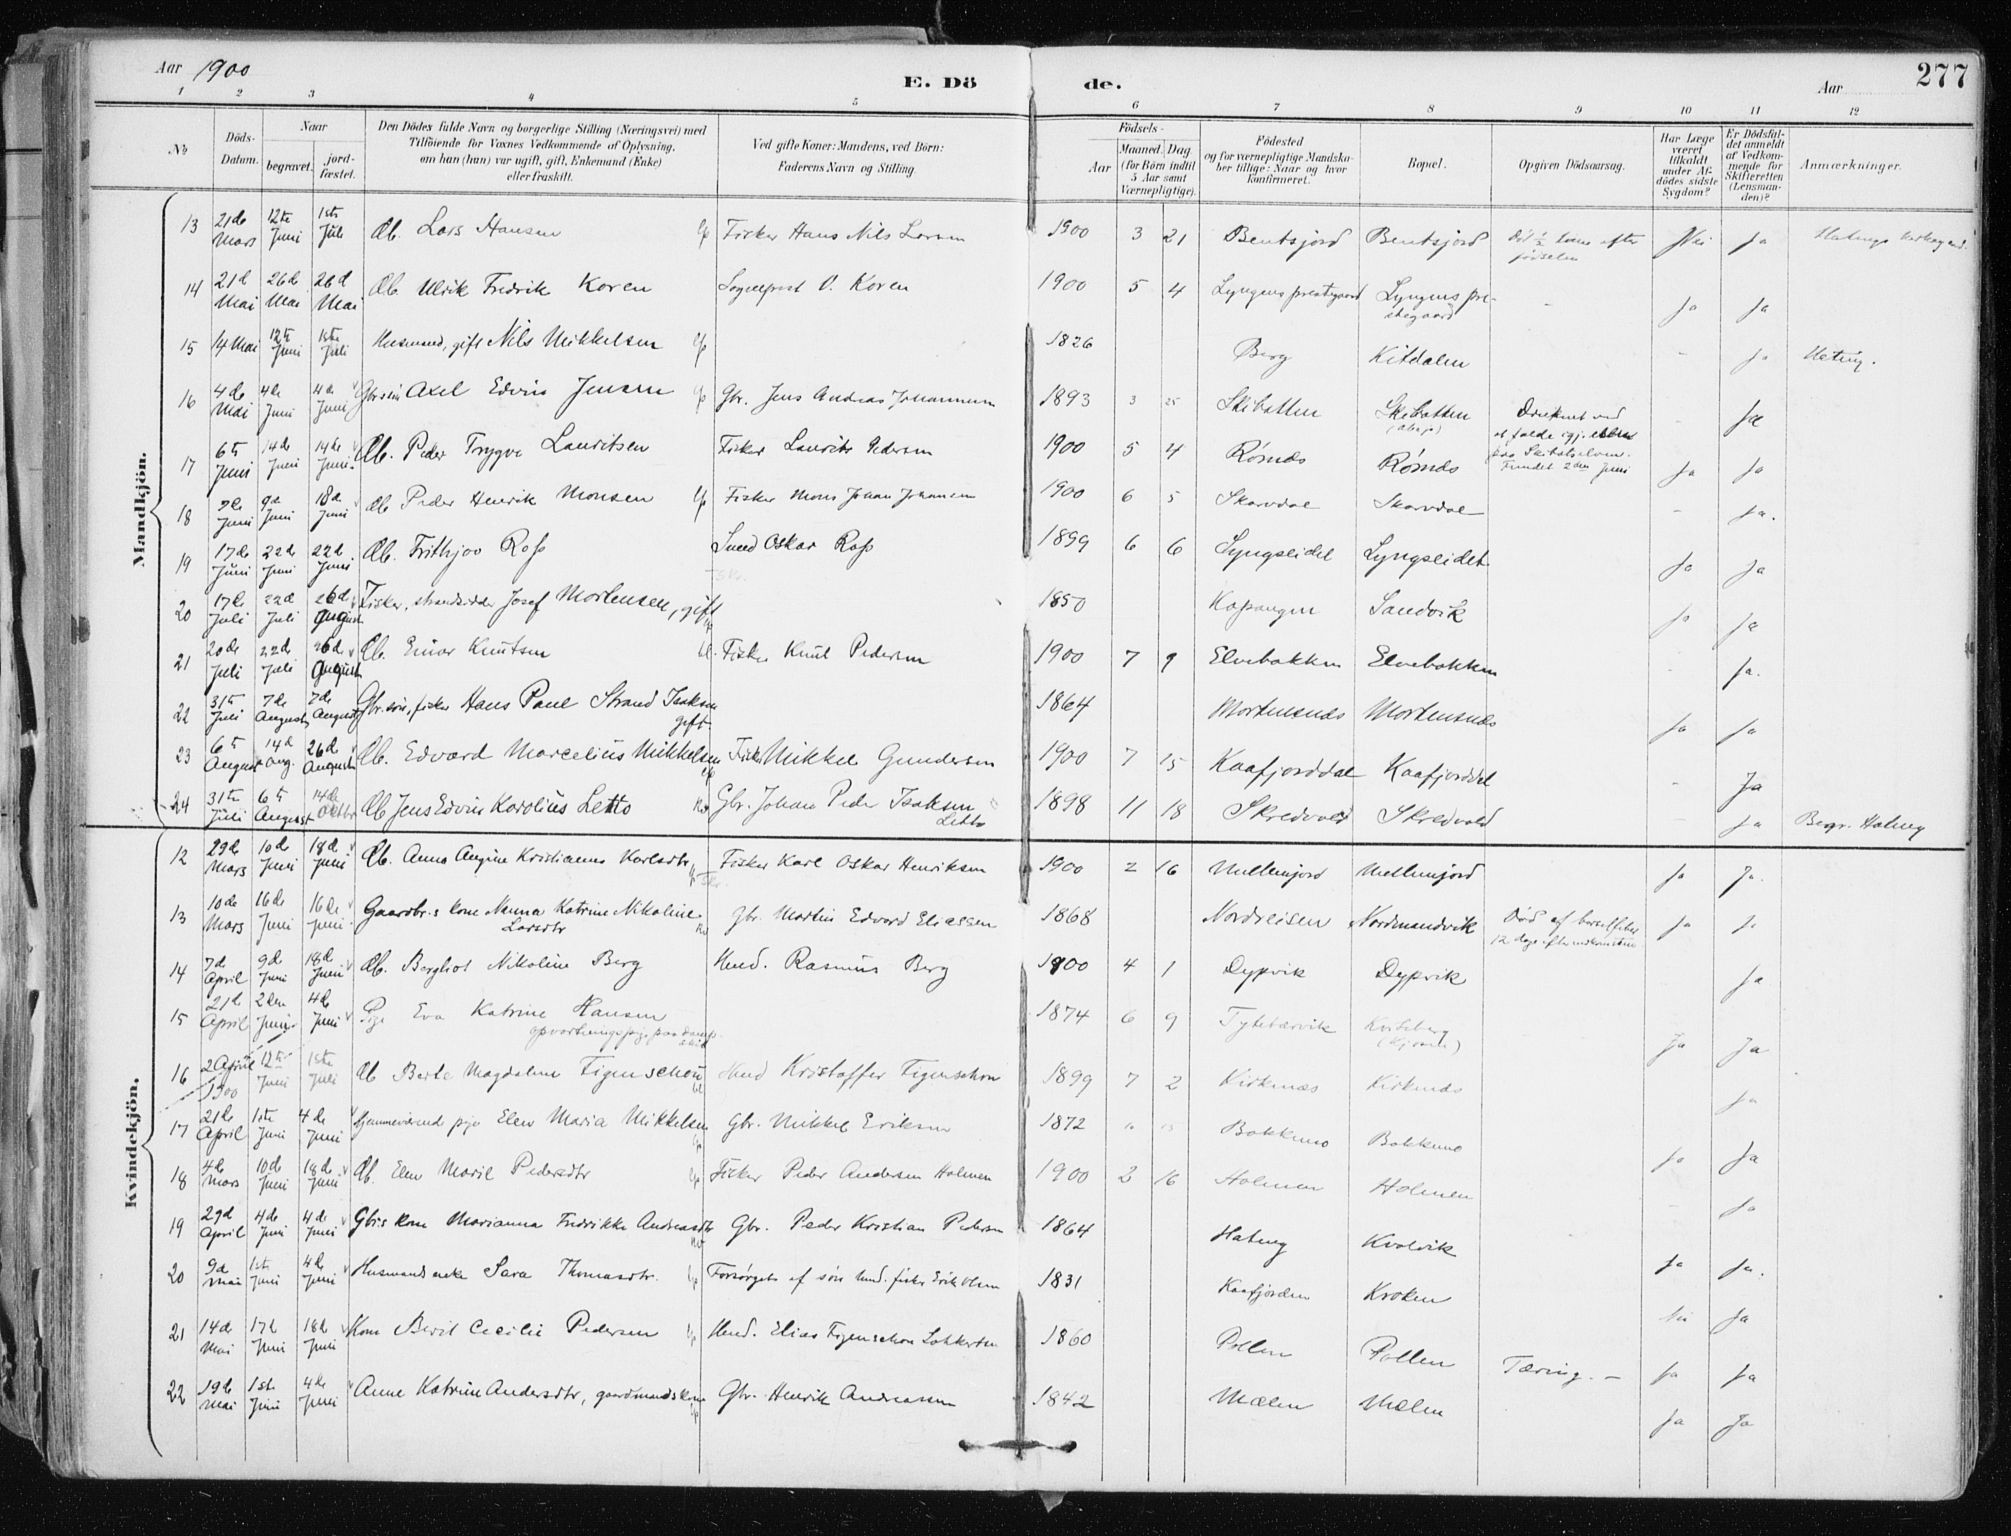 Aar 1900
E. Dö de.
Aar
277
1 2 3 4 5 6 7 8 9 10 11 12
No
Döds-Datum.
Naar
begravet.
jord-fæstet.
Den Dödes fulde Navn og borgerlige Stilling (Næringsvei) med
Tilföiende for Voxnes Vedkommende af Oplysning,
om han (hun) var ugift, gift, Enkemand (Enke)
eller fraskilt.
Ved gifte Koner: Mandens, ved Börn:
Faderens Navn og Stilling.
Födsels-
Aar
Maaned. Dag
(for Börn indtil
5 Aar samt
Værnepligtige).
Födested
og for værnepligtige Mandska-
ber tillige: Naar og hvor
konfirmeret.
Bopæl.
Opgiven Dödsaarsag.
Har Læge
været
tilkaldt
under Af-
dödes sidste
Sygdom?
Er Dödsfal-
det anmeldt
af Vedkom-
mende for
Skifteretten
(Lensman-
den)?
Anmærkninger.
Mandkjön.
13 21de Mars 12te Juni 1ste Juli Ub. Lars Hansen Fisker Hans Nils Larsen 1900 3 21 Bentsjord Bentsjord Død ½ time efter fødselen Nei Ja
14 21d Mai 26de Mai 26d Mai Ub. Ulrik Fredrik Koren Sogneprest U. Koren 1900 5 4 Lyngens prestegaard Lyngens prestegaard - Ja Ja
15 14 Mai 12te Juni 1ste Juli Husmand, gift Nils Mikkelsen 1826 Berg Kitdalen - Ja Hateng.
16 4de Mai 4de Juni 4de Juni Gbr.søn Axel Edvin Jensen Gbr. Jens Andreas Johannesen 1893 3 25 Skibotten Skibotten Druknet ved at falde paa Skibotselven. Fundet 2den Juni - Ja
17 6te Juni 14de Juni 14de Juni Ub. Peder Trygve Lauritsen Fisker Laurits Pedersen 1900 5 4 Rørnæs Rørnæs Ja Ja
18 9de Juni 9de Juni 18de Juni Ub Peder Henrik Monsen Fisker Mons Johan Johansen 1900 6 5 Skarvdal Skarvdal - Ja.
19 17de Juni 22de Juni 22de Juni Ub. Frithjov Ross Smed Oskar Ross 1899 6 6 Lyngseidet Lyngseidet Ja Ja
20 17de Juli 22de Juli 26de August Fisker, strandsidder Josef Mortensen, gift 1850 Kopangen Sandvik Ja Ja
21 20de Juli 22de Juli 26de August Ub. Einar Knutsen Fisker Knut Pedersen 1900 7 9 Elvebakken Elvebakken - Ja.
22 31te Juli 7de August 7de August Gbr.søn, fisker Hans Paul Strand Isaksen gift. 1864 Mortensnæs Mortensnæs Ja Ja
23 6te August 14d Aug. 26de August Ub. Edvard Marcelius Mikkelsen Fisker Mikkel Gundersen 1900 7 15 Kaafjorddal Kaafjorddal - Ja
24 31te Juli 6te August 14de Octbr Ub Jens Edvin Karolius Letto Gbr. Johan Peder Isaksen Letto 1898 11 18 Skredvold Skredvold Ja Begr. Hateng
Kvindekjön.
12 29de Mars 10de Juni 18de Juni Ub. Anna Angine Kristianna Karlsdtr Fisker Karl Oskar Henriksen 1900 2 16 Mellemjord Mellemjord Ja Ja.
13 10de Mars 16de Juni 16de Juni Gaardbr.s kone Nanna Katrine Nikoline Larsdtr Gbr. Martin Edvard Eliassen 1868 Nordreisen Nordmandvik Død af barselfeber 12 dage efter nedkomsten Ja Ja
14 7d April 9d Juni 18de Juni Ub. Bergliot Nikoline Berg Hmd. Rasmus Berg 1900 4 1 Dypvik Dypvik Ja
15 21d April 2den Juni 4de Juni Pige Eva Katrine Hansen opvartningspige paa dampskib 1874 6 9 Tytebærvik Kviteberg Ja Ja
16 2 April 1900 12te Juni 1ste Juli Ub Berte Magdalene Figenschou Hmd Kristoffer Figenschou 1899 7 2 Kirkenæs Kirkenæs Ja
17 21de April 1ste Juni 4de Juni hjemmeværende pige Elen Maria Mikkelsen Gbr. Mikkel Eriksen 1872 Bakkemo Bakkemo Ja Ja
18 4de Mars 10de Juni 18de Juni Ub. Elen Marit Pedersdtr Fisker Peder Andersen Holmen 1900 2 16 Holmen Holmen - Ja
19 29d April 4de Juni 4de Juni Gbr.s kone Marianna Fredrikke Andreasdtr Gbr. Peder Kristian Pedersen 1864 Hateng Kvalvik Ja Ja.
20 9d Mai 1ste Juni 4de Juni Husmandsenke Sara Thomasdtr. Forsørget af søn hmd. fisker Erik Olsen 1831 Kaafjorden Kroken Nei Ja
21 14de Mai 17de Juni 18de Juni Kone Berit Cecilie Pedersen Hmd. Elias Figenschou Lokkertsen 1860 Pollen Pollen Tæring. - Ja Ja
22 19de Mai 1ste Juni 4de Juni Anne Katrine Andersdtr, gaardmandskone Gbr. Henrik Andreassen 1842 Mælen Mælen Ja Ja